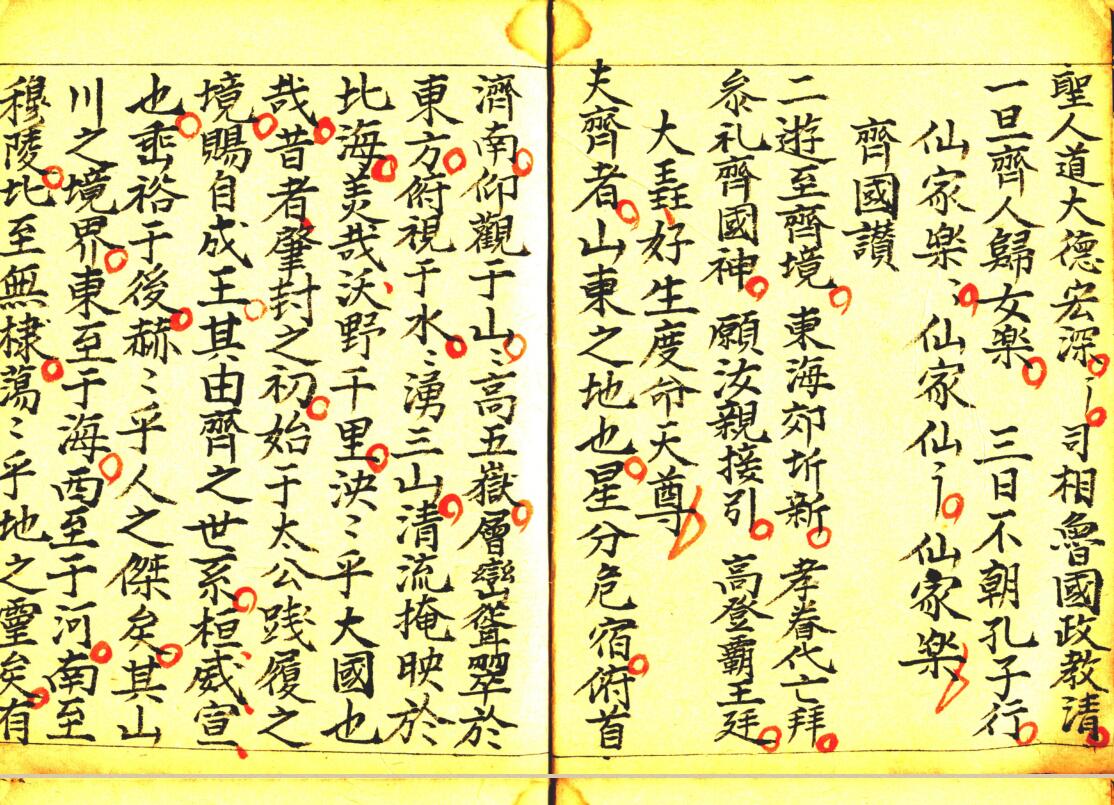 聖人道大德宏深〻司相魯國政教清
一旦齊人歸女楽三日不朝孔子行
仙家楽〻仙家仙〻仙家楽
齊國讃
二遊至齊境東海郊圻新孝眷代亡拜
叅礼齊國神願汝親接引高登霸王廷
大聖好生度命天尊
夫齊者山東之地也星分危宿俯首
濟南仰觀于山〻高五嶽層巒聳翠於
東方俯視于水〻湧三山清流掩映於
北海美哉沃野千里泱〻乎大國也
哉昔者肇封之初始于太公践履之
境賜自成王其由齊之世系桓威宣
也垂裕于後赫〻乎人之傑矣其山
川之境界東至于海西至于河南至
穆陵北至無棣蕩〻乎地之靈矣有